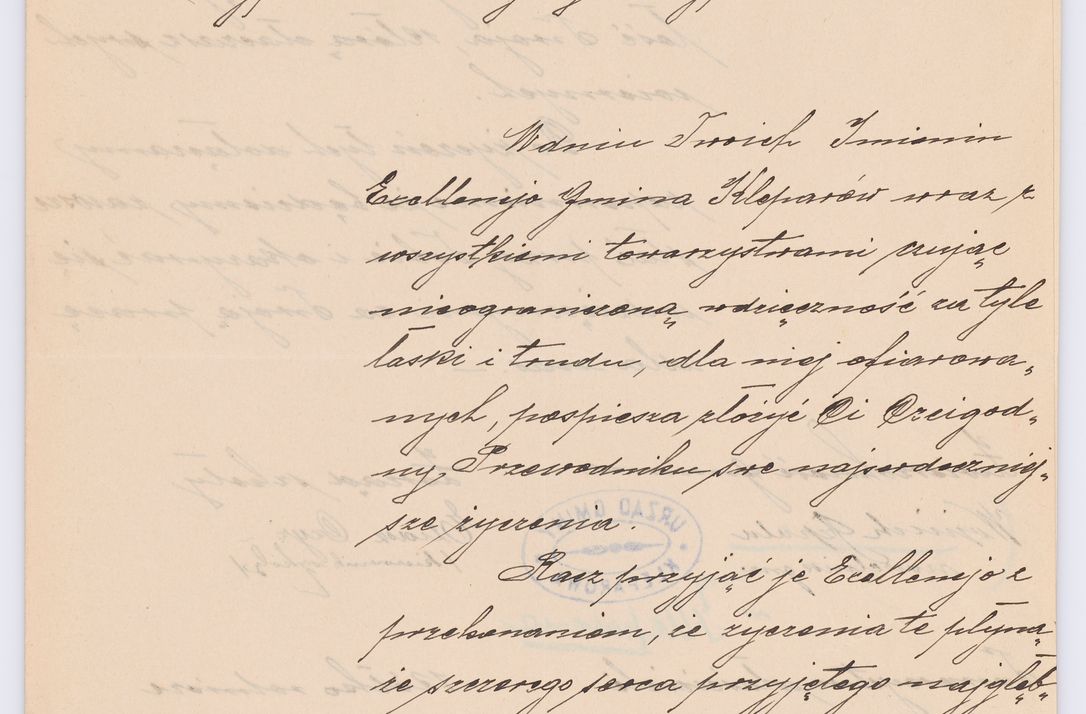 W dniu Twoich Imienin
Excellenijo Gmina Kleparów wraz z
wszystkiemi towarzystwami czując
nieograniczoną wdzięczność za tyle
łaski i trudu, dla niej ofiarowa„
nych, pospiesza złożyć Ci Czcigod„
ny Przewodniku swe najserdeczniej„
sze życzenia.
Racz przyjąć je Excellenijo z
przekonaniem, że życzenia te płyną
ze szczerego serca przyjętego najgłęb„
URZĄD GMI
KLEPARÓW